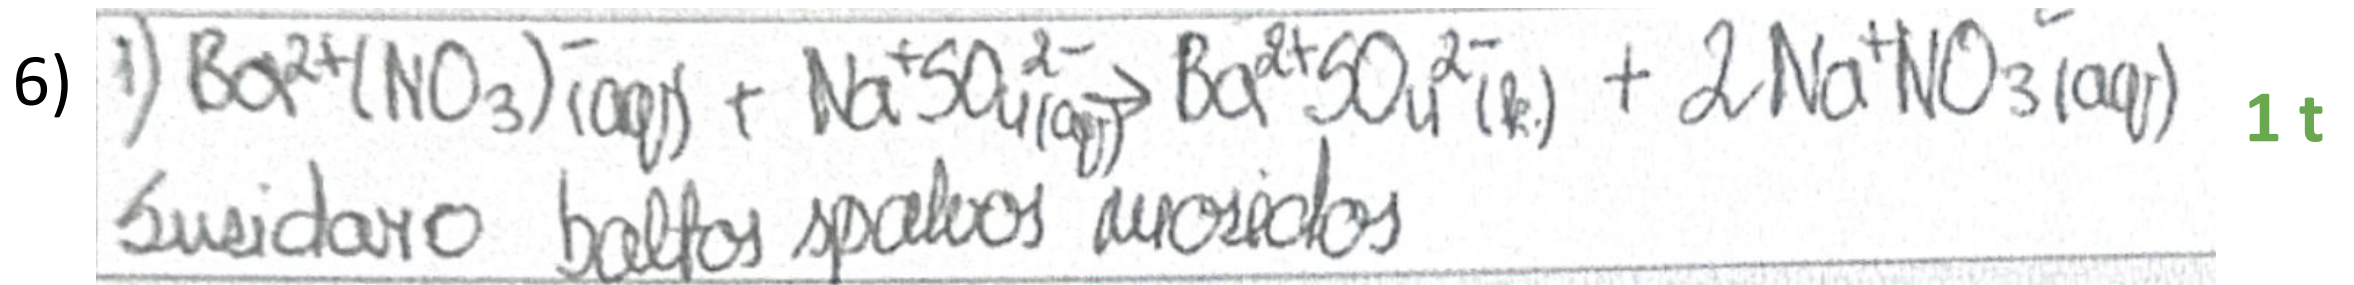 6) 1) Ba²⁺(NO₃)⁻(aq) + Na⁺SO₄²⁻(aq) → Ba²⁺SO₄²⁻(k.) + 2Na⁺NO₃⁻(aq) 1 t
Susidaro baltos spalvos nuosėdos